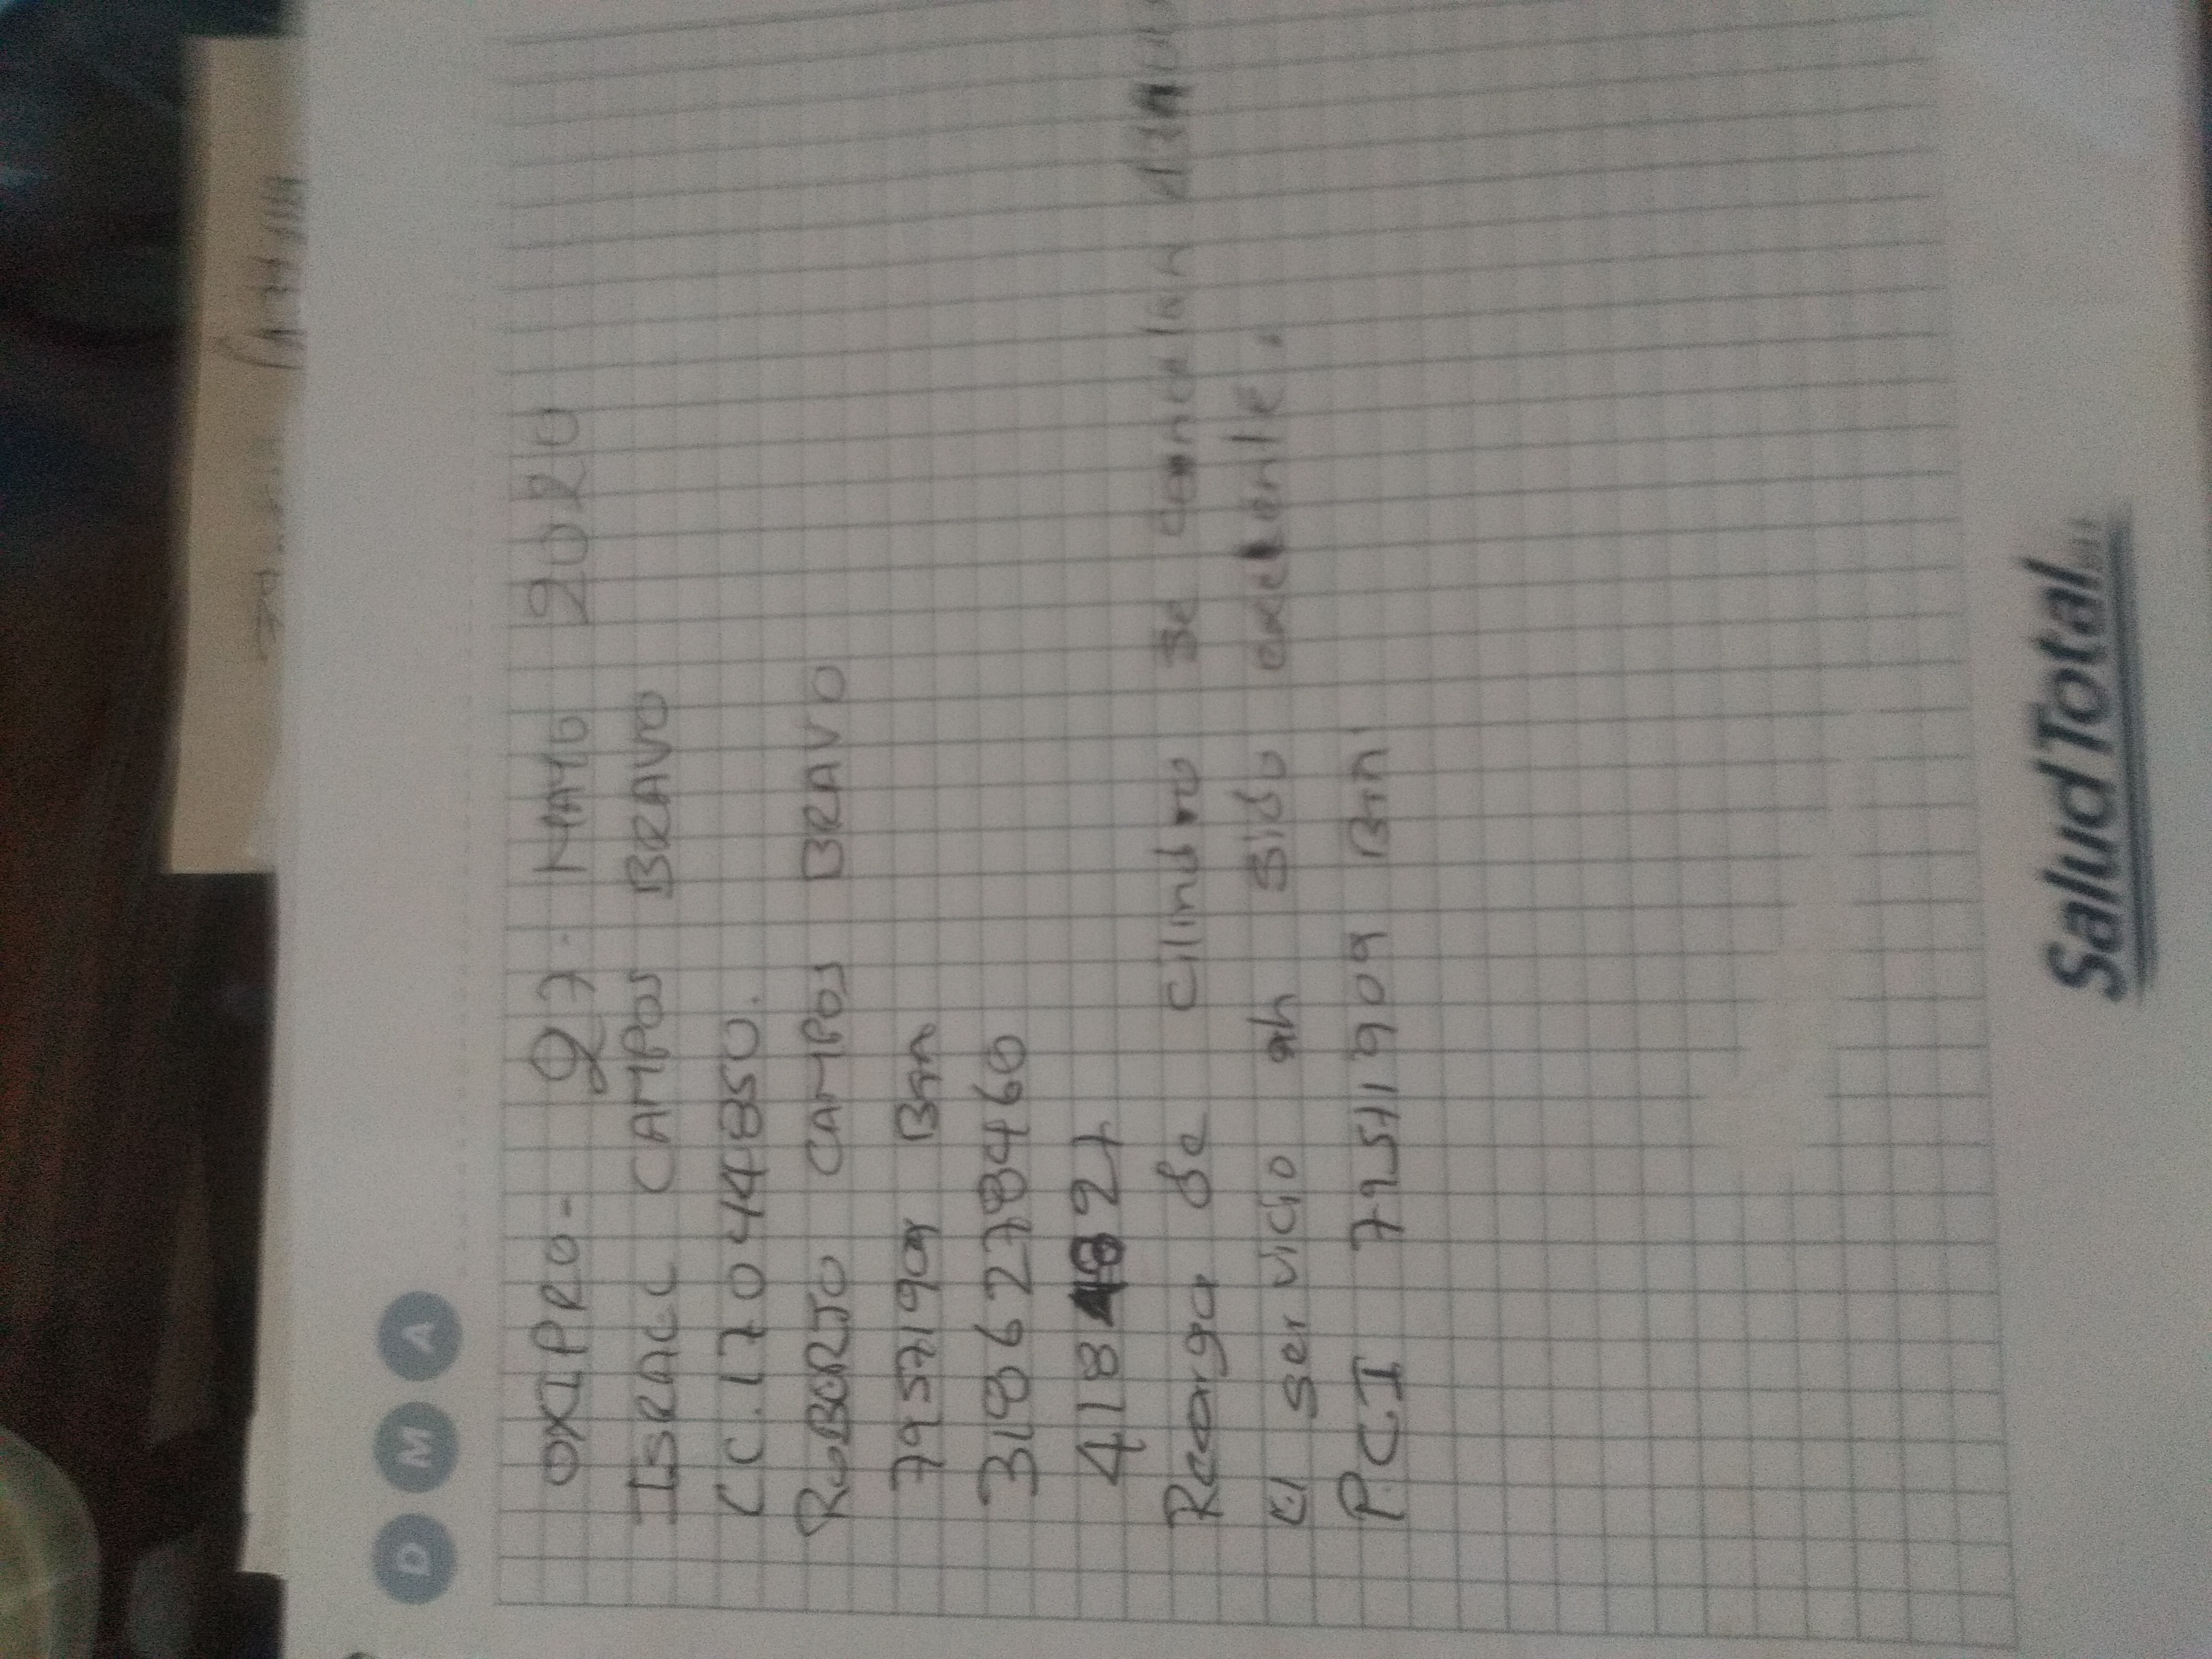 D M A
OXIPRO- 27. MAYO 2020
ISRAEL CAMPOS BRAVO
CC. 17044850.
ROBERTO CAMPOS BRAVO
79571909 Btn
3186278460
4118 48927
Recarga de Cilindro Se Cancelan
El servicio ah Sido excelente.
P.C.I 79571909 Btn
Salud Total